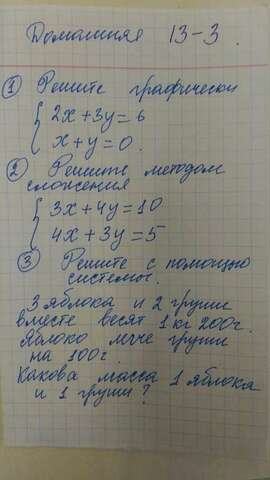 Домашняя 13-3.
① Решите графически
2x+3y=6
x+y=0.
② Решите методом
сложения
3x+4y=10
4x+3y=5
③ Решите с помощью
системы.
3 яблока и 2 груши
вместе весят 1 кг 200г.
Яблоко легче груши
на 100г.
Какова масса 1 яблока
и 1 груши?